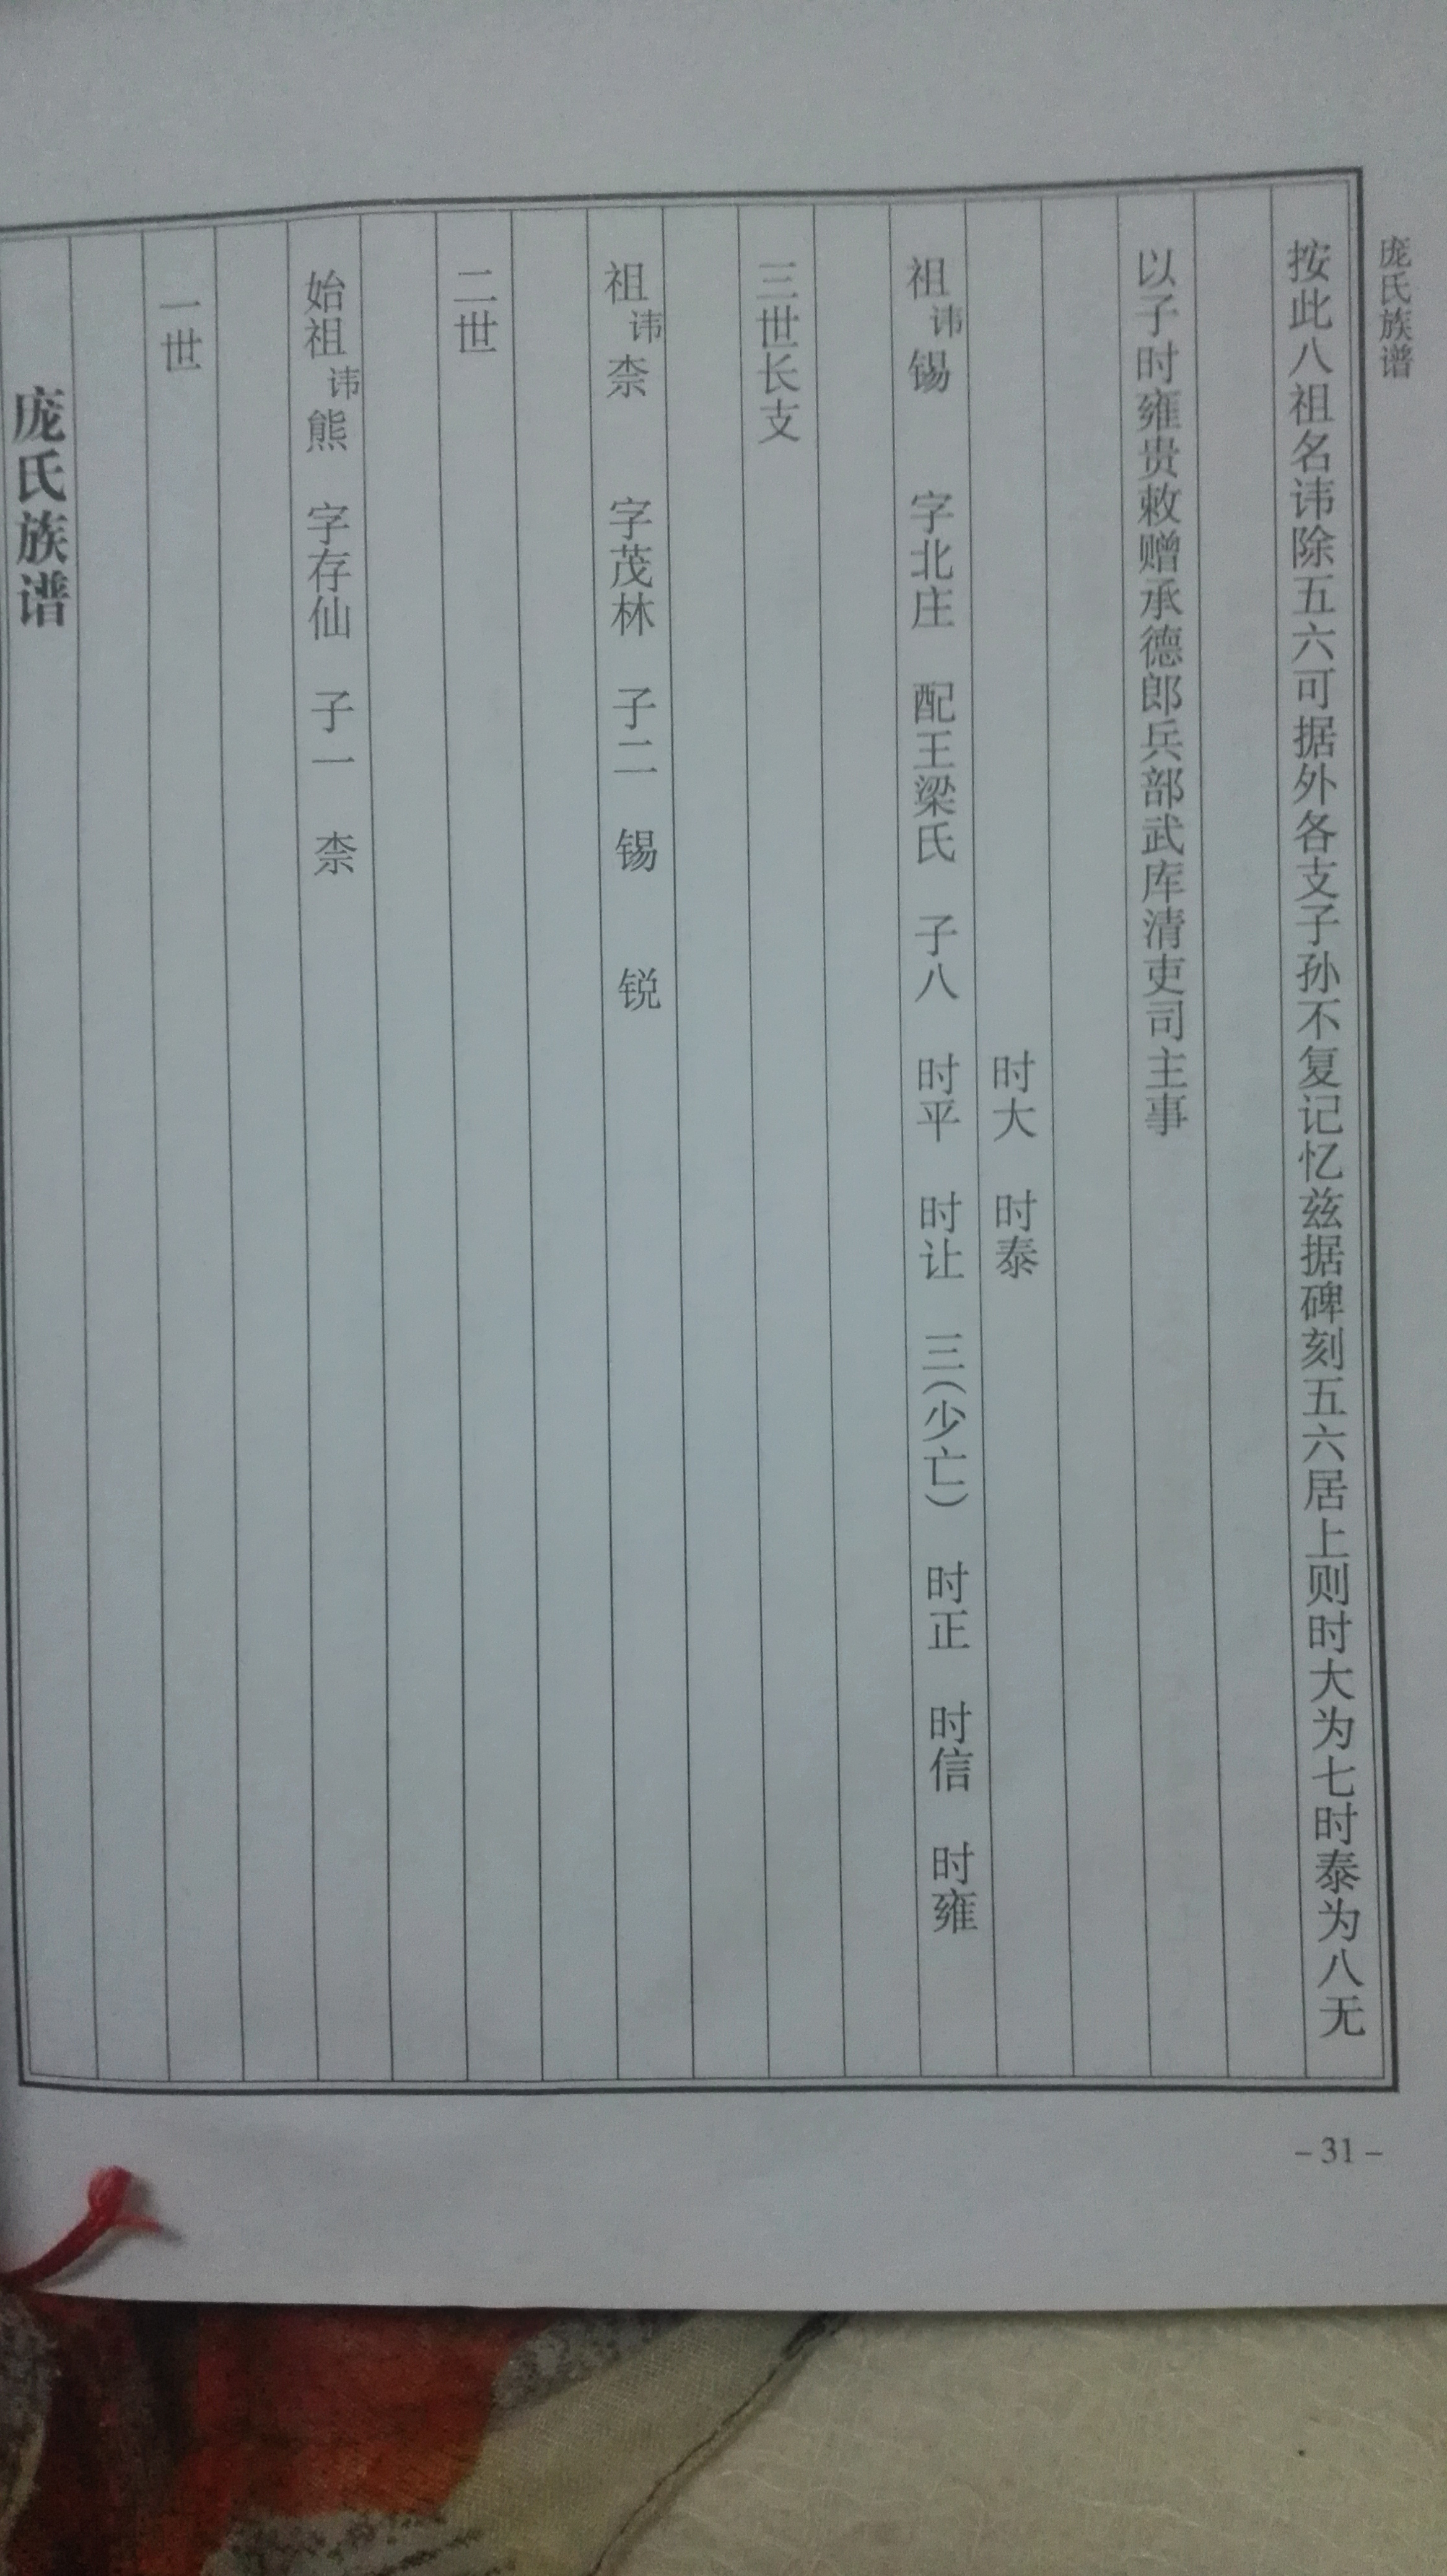 庞氏族谱
一世
始祖讳熊 字存仙 子一 柰
二世
祖讳柰 字茂林 子二 锡 锐
三世长支
祖讳锡 字北庄 配王梁氏 子八 时平 时让 三(少亡) 时正 时信 时雍
时大 时泰
以子时雍贵敕赠承德郎兵部武库清吏司主事
按此八祖名讳除五六可据外各支子孙不复记忆兹据碑刻五六居上则时大为七时泰为八无
庞氏族谱
– 31 –